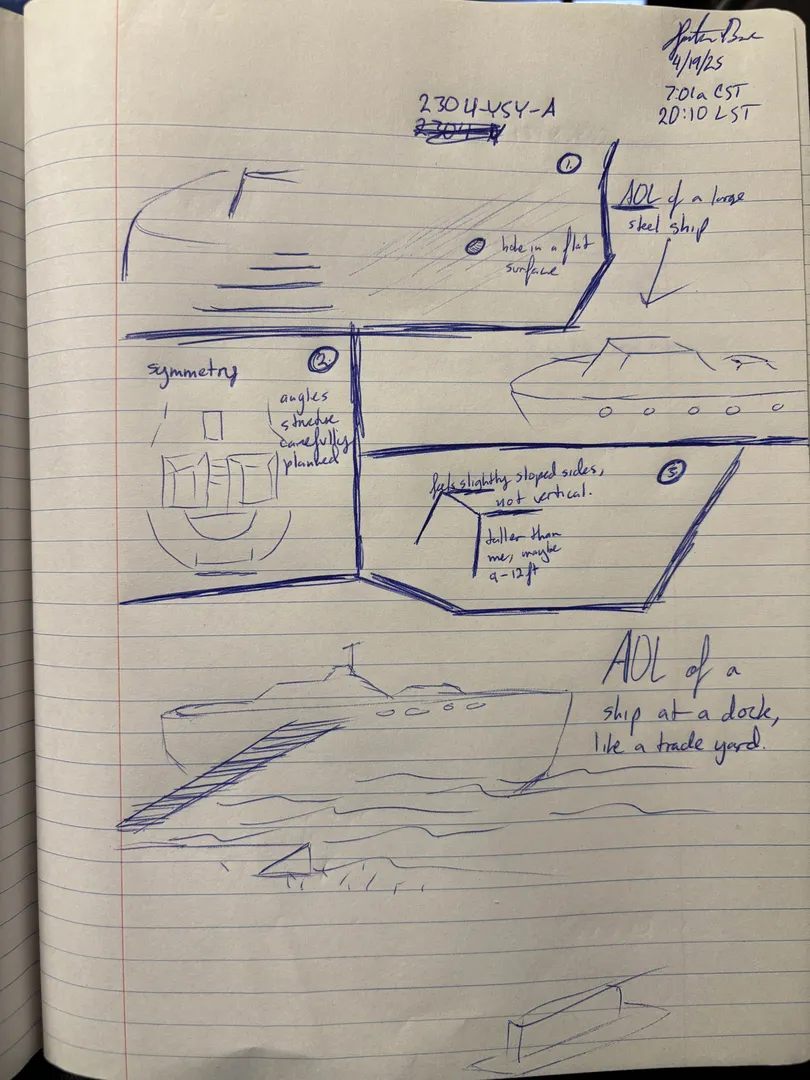 4/19/25
7:01a CST
20:10 LST
2304-YSY-A
1.
AOL of a large
steel ship
hole in a flat
surface
2.
symmetry
angles
structure
carefully
planned
3.
feels slightly sloped sides,
not vertical.
taller than
me, maybe
9-12ft
AOL of a
ship at a dock,
like a trade yard.